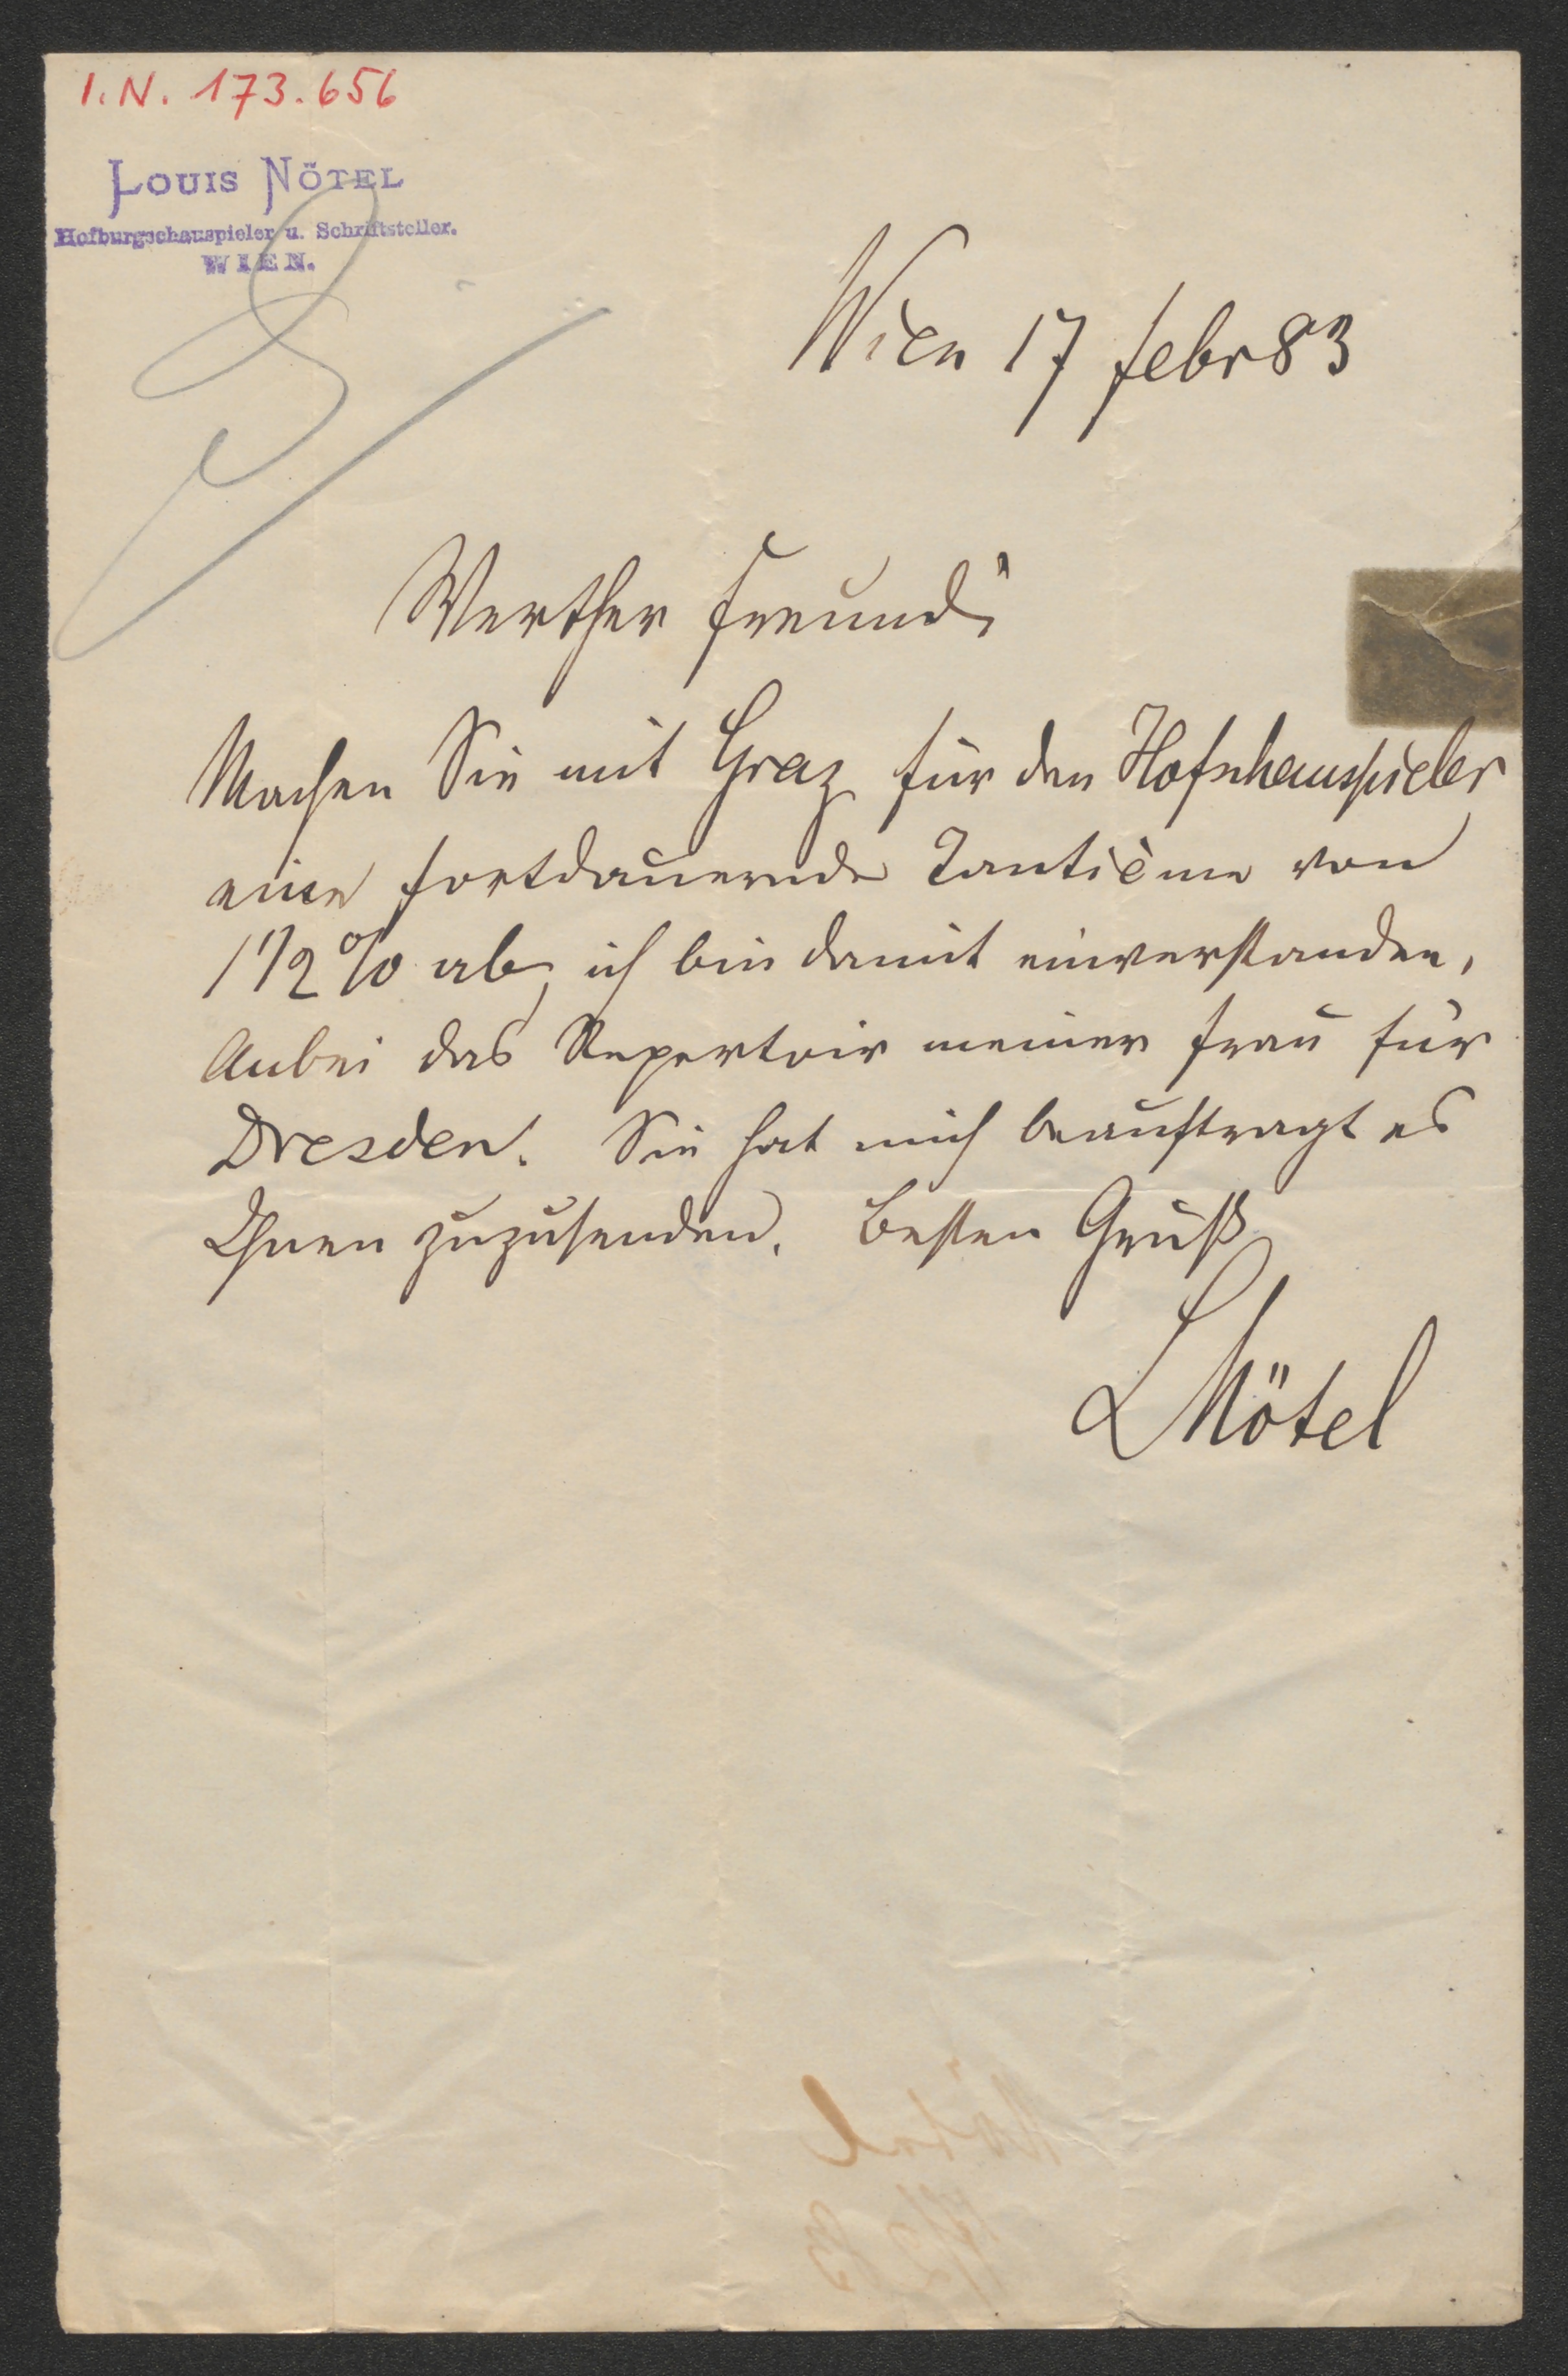 I.N. 173.656
LOUIS NÖTEL
Hofburgschauspieler u. Schriftsteller.
WIEN.
Wien 17 febr 83
Werther Freund!
Machen Sie mit Graz für den Hofschauspieler
eine fortdauernde Tantième von
1 1/2 % ab, ich bin damit einverstanden.
Anbei das Repertoir meiner Frau für
Dresden. Sie hat mich beauftragt es
Ihnen zuzusenden. Besten Gruß
LNötel